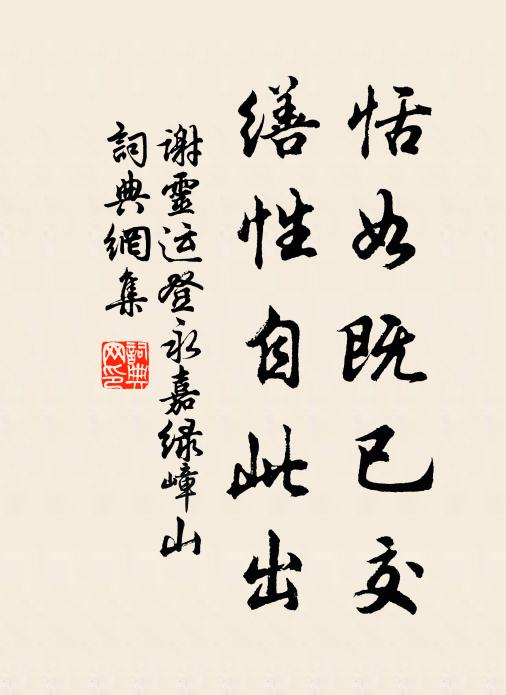 恬如既已交
缮性自此出
谢靈运登永嘉绿嶂山
詞典網集
詞典
网印